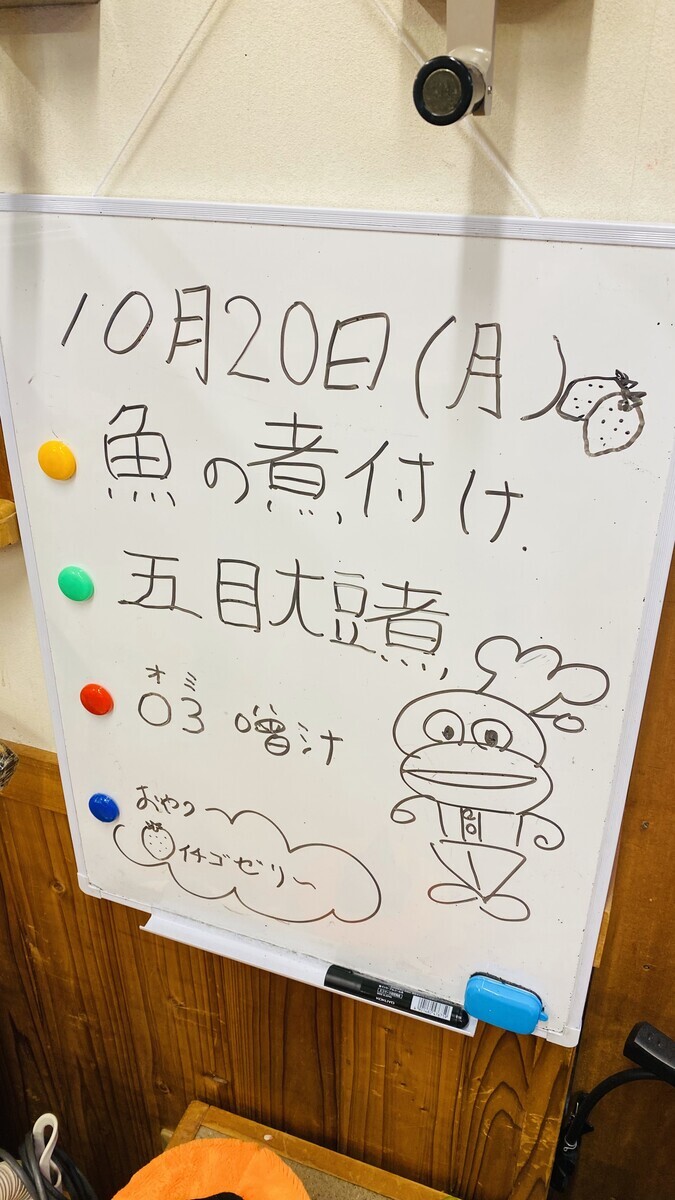 10月20日(月)
魚の煮付け
五目大豆煮
オミ
03 噌汁
おやつ
イチゴゼリー